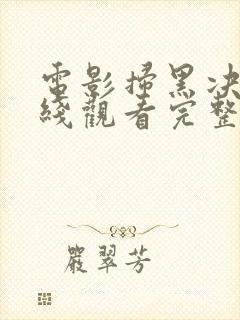 電影掃黑決
綫觀看完整
嚴翠芳